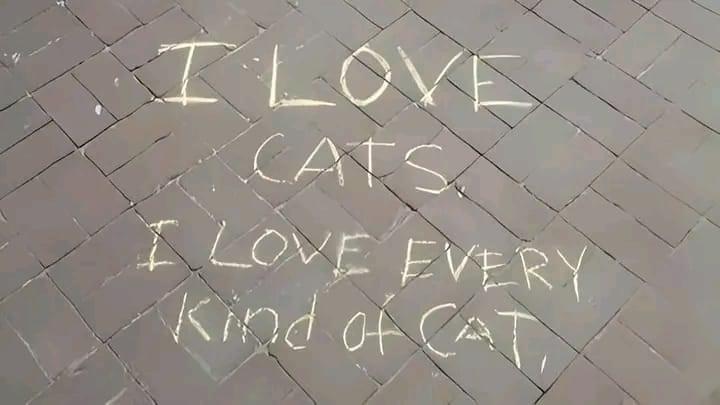 I LOVE
CATS
I LOVE EVERY
Kind of CAT,